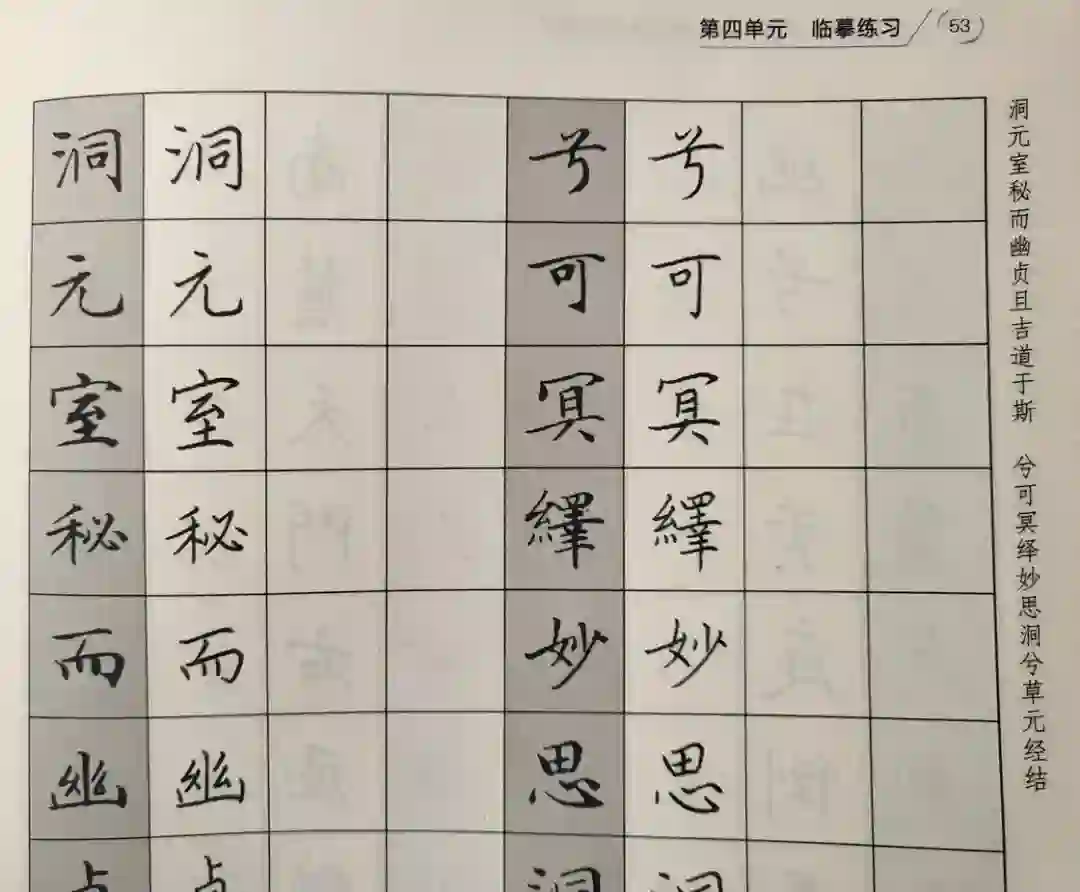 第四单元 临摹练习 53
洞元室秘而幽
洞元室秘而幽
兮可冥繹妙思洞
兮可冥繹妙思洞
洞元室秘而幽贞且吉道于斯 兮可冥绎妙思洞兮草元经结